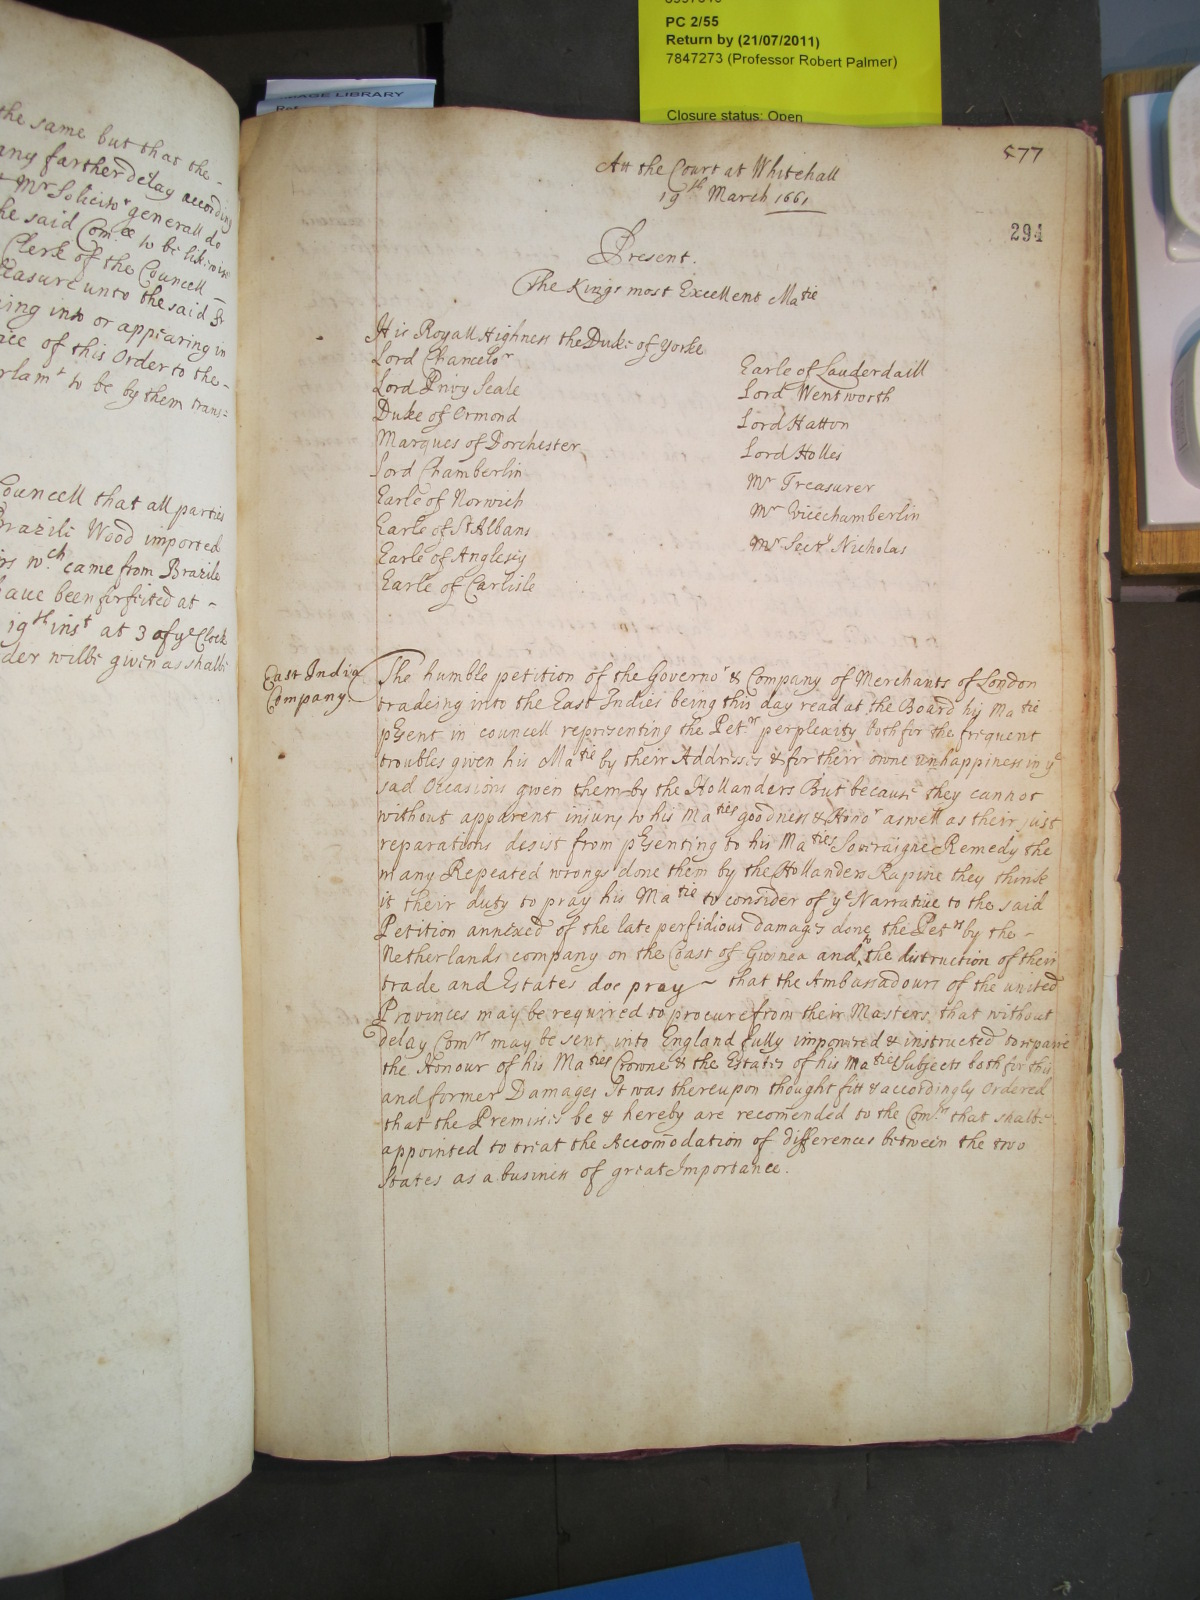 PC 2/55
Return by (21/07/2011)
7847273 (Professor Robert Palmer)
Closure status: Open
IMAGE LIBRARY
the same but that the -
any farther delay according
Mr Solicitor generall do
he said Comee to be likewise
Clerk of the Councell
leasure unto the said
ing into or appearing in
ice of this Order to the -
rlamt to be by them trans=
Councell that all parties
Brazile Wood imported
rs wch came from Brazile
have been forfeited at -
19th inst at 3 of ye Clock
der wilbe given as shalbe
577
Att the Court at Whitehall
19th March 1661
294
Present.
The Kings most Excellent Matie
His Royall Highness the Duke of Yorke
Lord Chancelor
Lord Privy Seale
Duke of Ormond
Marques of Dorchester
Lord Chamberlin
Earle of Norwich
Earle of St Albans
Earle of Anglesey
Earle of Carlisle
Earle of Lauderdaill
Lord Wentworth
Lord Hatton
Lord Holles
Mr Treasurer
Mr Vicechamberlin
Mr Secry Nicholas
East India
Company
The humble petition of the Governor & Company of Merchants of London
tradeing into the East Indies being this day read at the Board his Matie
psent in councell representing the Petrs perplexity both for the frequent
troubles given his Matie by their Addresses & for their owne unhappiness in ye
sad Occasions given them by the Hollanders But because they cannot
without apparent injury to his Maties goodness & Honor aswell as their just
reparations desist from psenting to his Maties Soveraigne Remedy the
many Repeated wrongs done them by the Hollanders Rapine they think
it their duty to pray his Matie to consider of ye Narrative to the said
Petition annexed of the late perfidious damages done the Petrs by the -
Netherlands company on the Coast of Guinea and to the distruction of their
trade and Estates doe pray ~ that the Ambassadours of the united
Provinces may be required to procure from their Masters, that without
delay Comrs may be sent into England fully impowred & instructed to repaire
the Honour of his Maties Crowne & the Estates of his Maties Subjects both for this
and former Damages It was thereupon thought fitt & accordingly Ordered
that the Premises be & hereby are recomended to the Comrs that shalbe
appointed to treat the Accomodation of differences between the two
States as a business of great Importance.